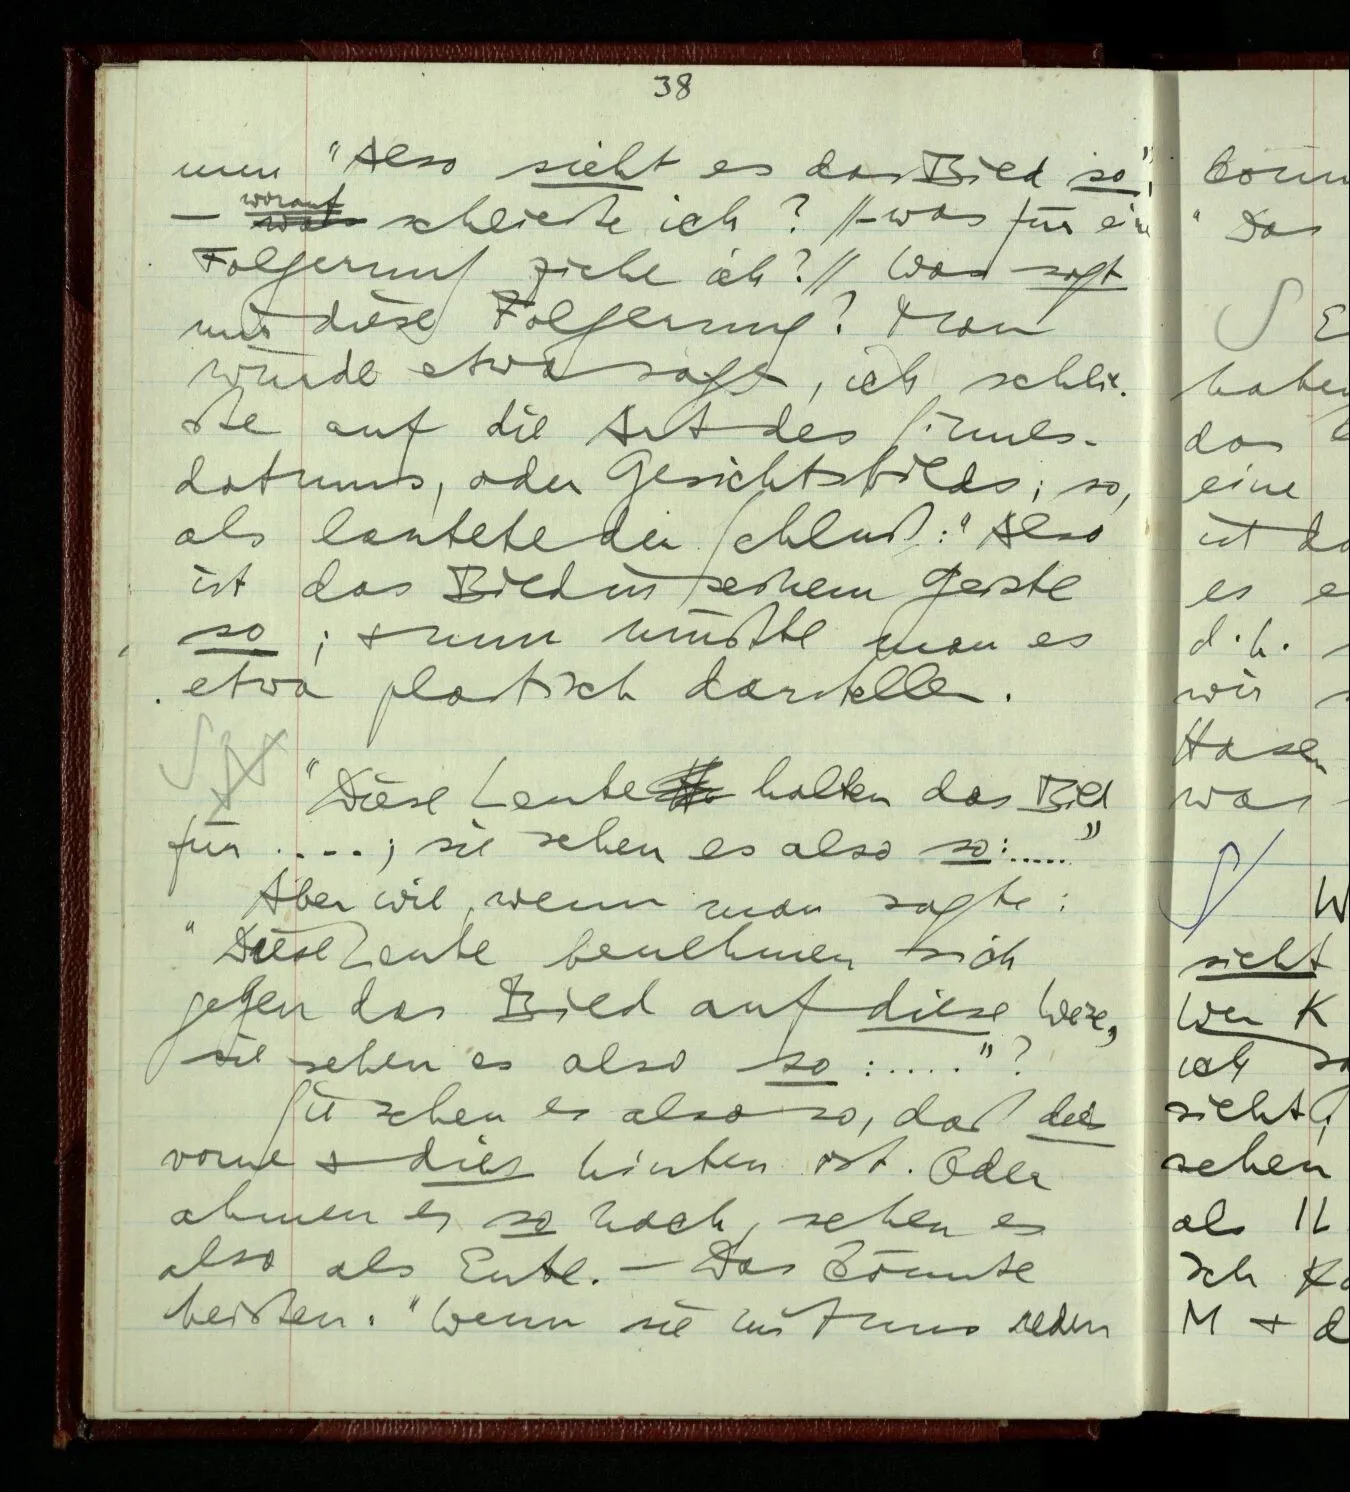 38
nun "Also sieht es das Bild so",
worauf
– was schließe ich? //– was für eine
Folgerung ziehe ich?// Was sagt
mir diese Folgerung? Man
würde etwa sagen, ich schlie-
ße auf die Art des Sinnes-
datums, oder Gesichtsbilds; so,
als lautete der Schluß: "Also
ist das Bild in seinem Geiste
so; + nun müßte man es
etwa plastisch darstellen.
"Diese Leute halten das Bild
für ....; sie sehen es also so:....."
Aber wie, wenn man sagte:
"Diese Leute benehmen sich
gegen das Bild auf diese Weise,
sie sehen es also so:....."?
Sie sehen es also so, daß dies
vorne + dies hinten ist. Oder
ahmen es so nach, sehen es
also als Ente. – Das könnte
heißen: "Wenn sie mit uns reden
könn
"Das
S E
haben
das
eine
ist da
es e
d.h.
wir
Hasen
was
S W
sieht
Wer K
ich so
sieht,
sehen
als
Ich
M + d